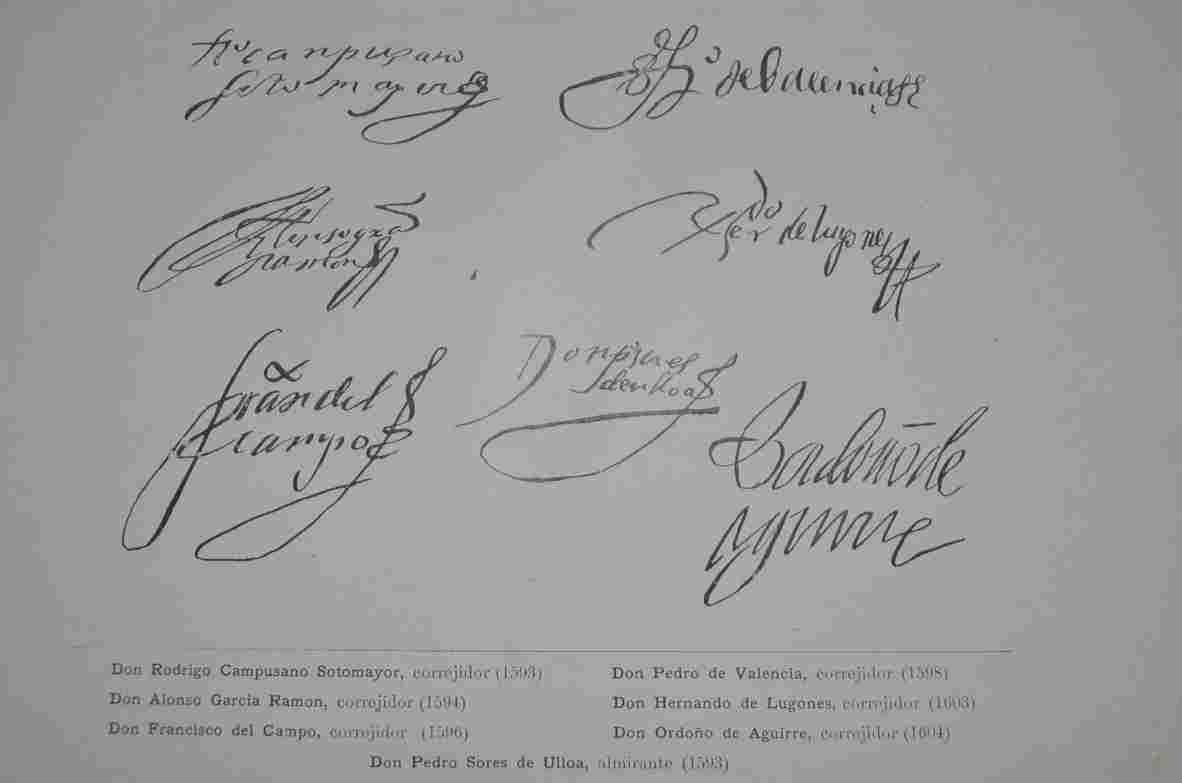 campusano
soto mayor
de balencia
Alonso garcia
ramon
Her do de lugones
fran del
campo
Don
de ulloa
don ordoño de
aguirre
Don Rodrigo Campusano Sotomayor, correjidor (1593)
Don Pedro de Valencia, correjidor (1598)
Don Alonso García Ramon, correjidor (1594)
Don Hernando de Lugones, correjidor (1603)
Don Francisco del Campo, correjidor (1596)
Don Ordoño de Aguirre, correjidor (1604)
Don Pedro Sores de Ulloa, almirante (1593)